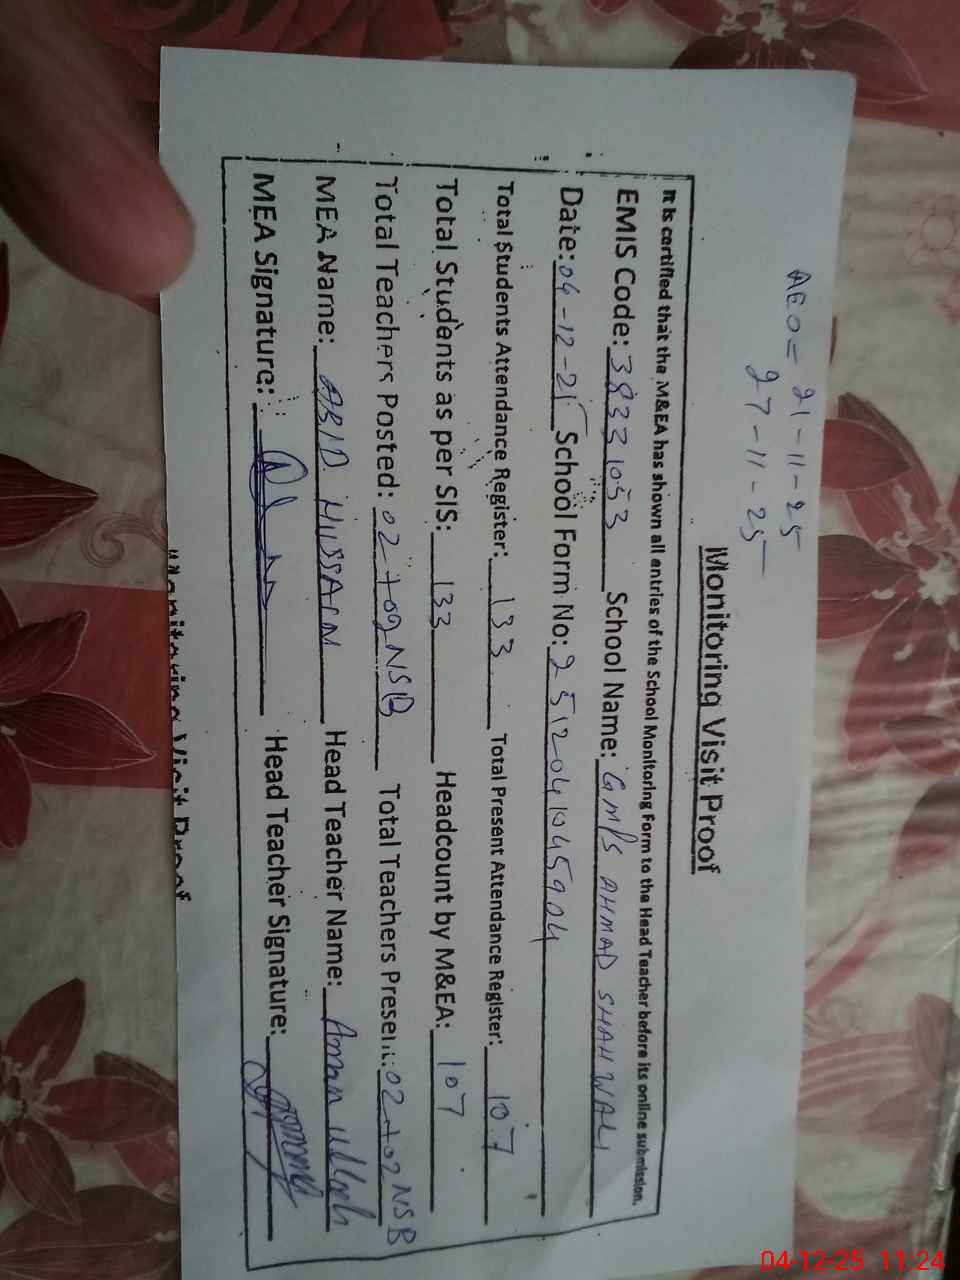 AEO = 21-11-25
27-11-25
Monitoring Visit Proof
It is certified that the M&EA has shown all entries of the School Monitoring Form to the Head Teacher before its online submission.
EMIS Code: 38331053 School Name: GMPS AHMAD SHAH WALI
Date: 04-12-25 School Form No: 2512041045904
Total Students Attendance Register: 133 Total Present Attendance Register: 107
Total Students as per SIS: 133 Headcount by M&EA: 107
Total Teachers Posted: 02+02NSB Total Teachers Present: 02+02NSB
MEA Name: ABID HUSSAIN Head Teacher Name: Aman ullah
MEA Signature: Head Teacher Signature:
Monitoring Visit Proof
04-12-25 11:24